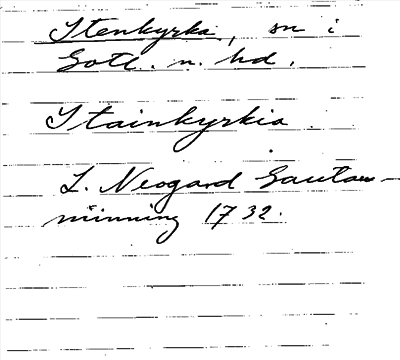 Stenkyrka, sn i
Gotl. n. hd.
Stainkyrkia
L. Neogard Gautau-
minning 1732.